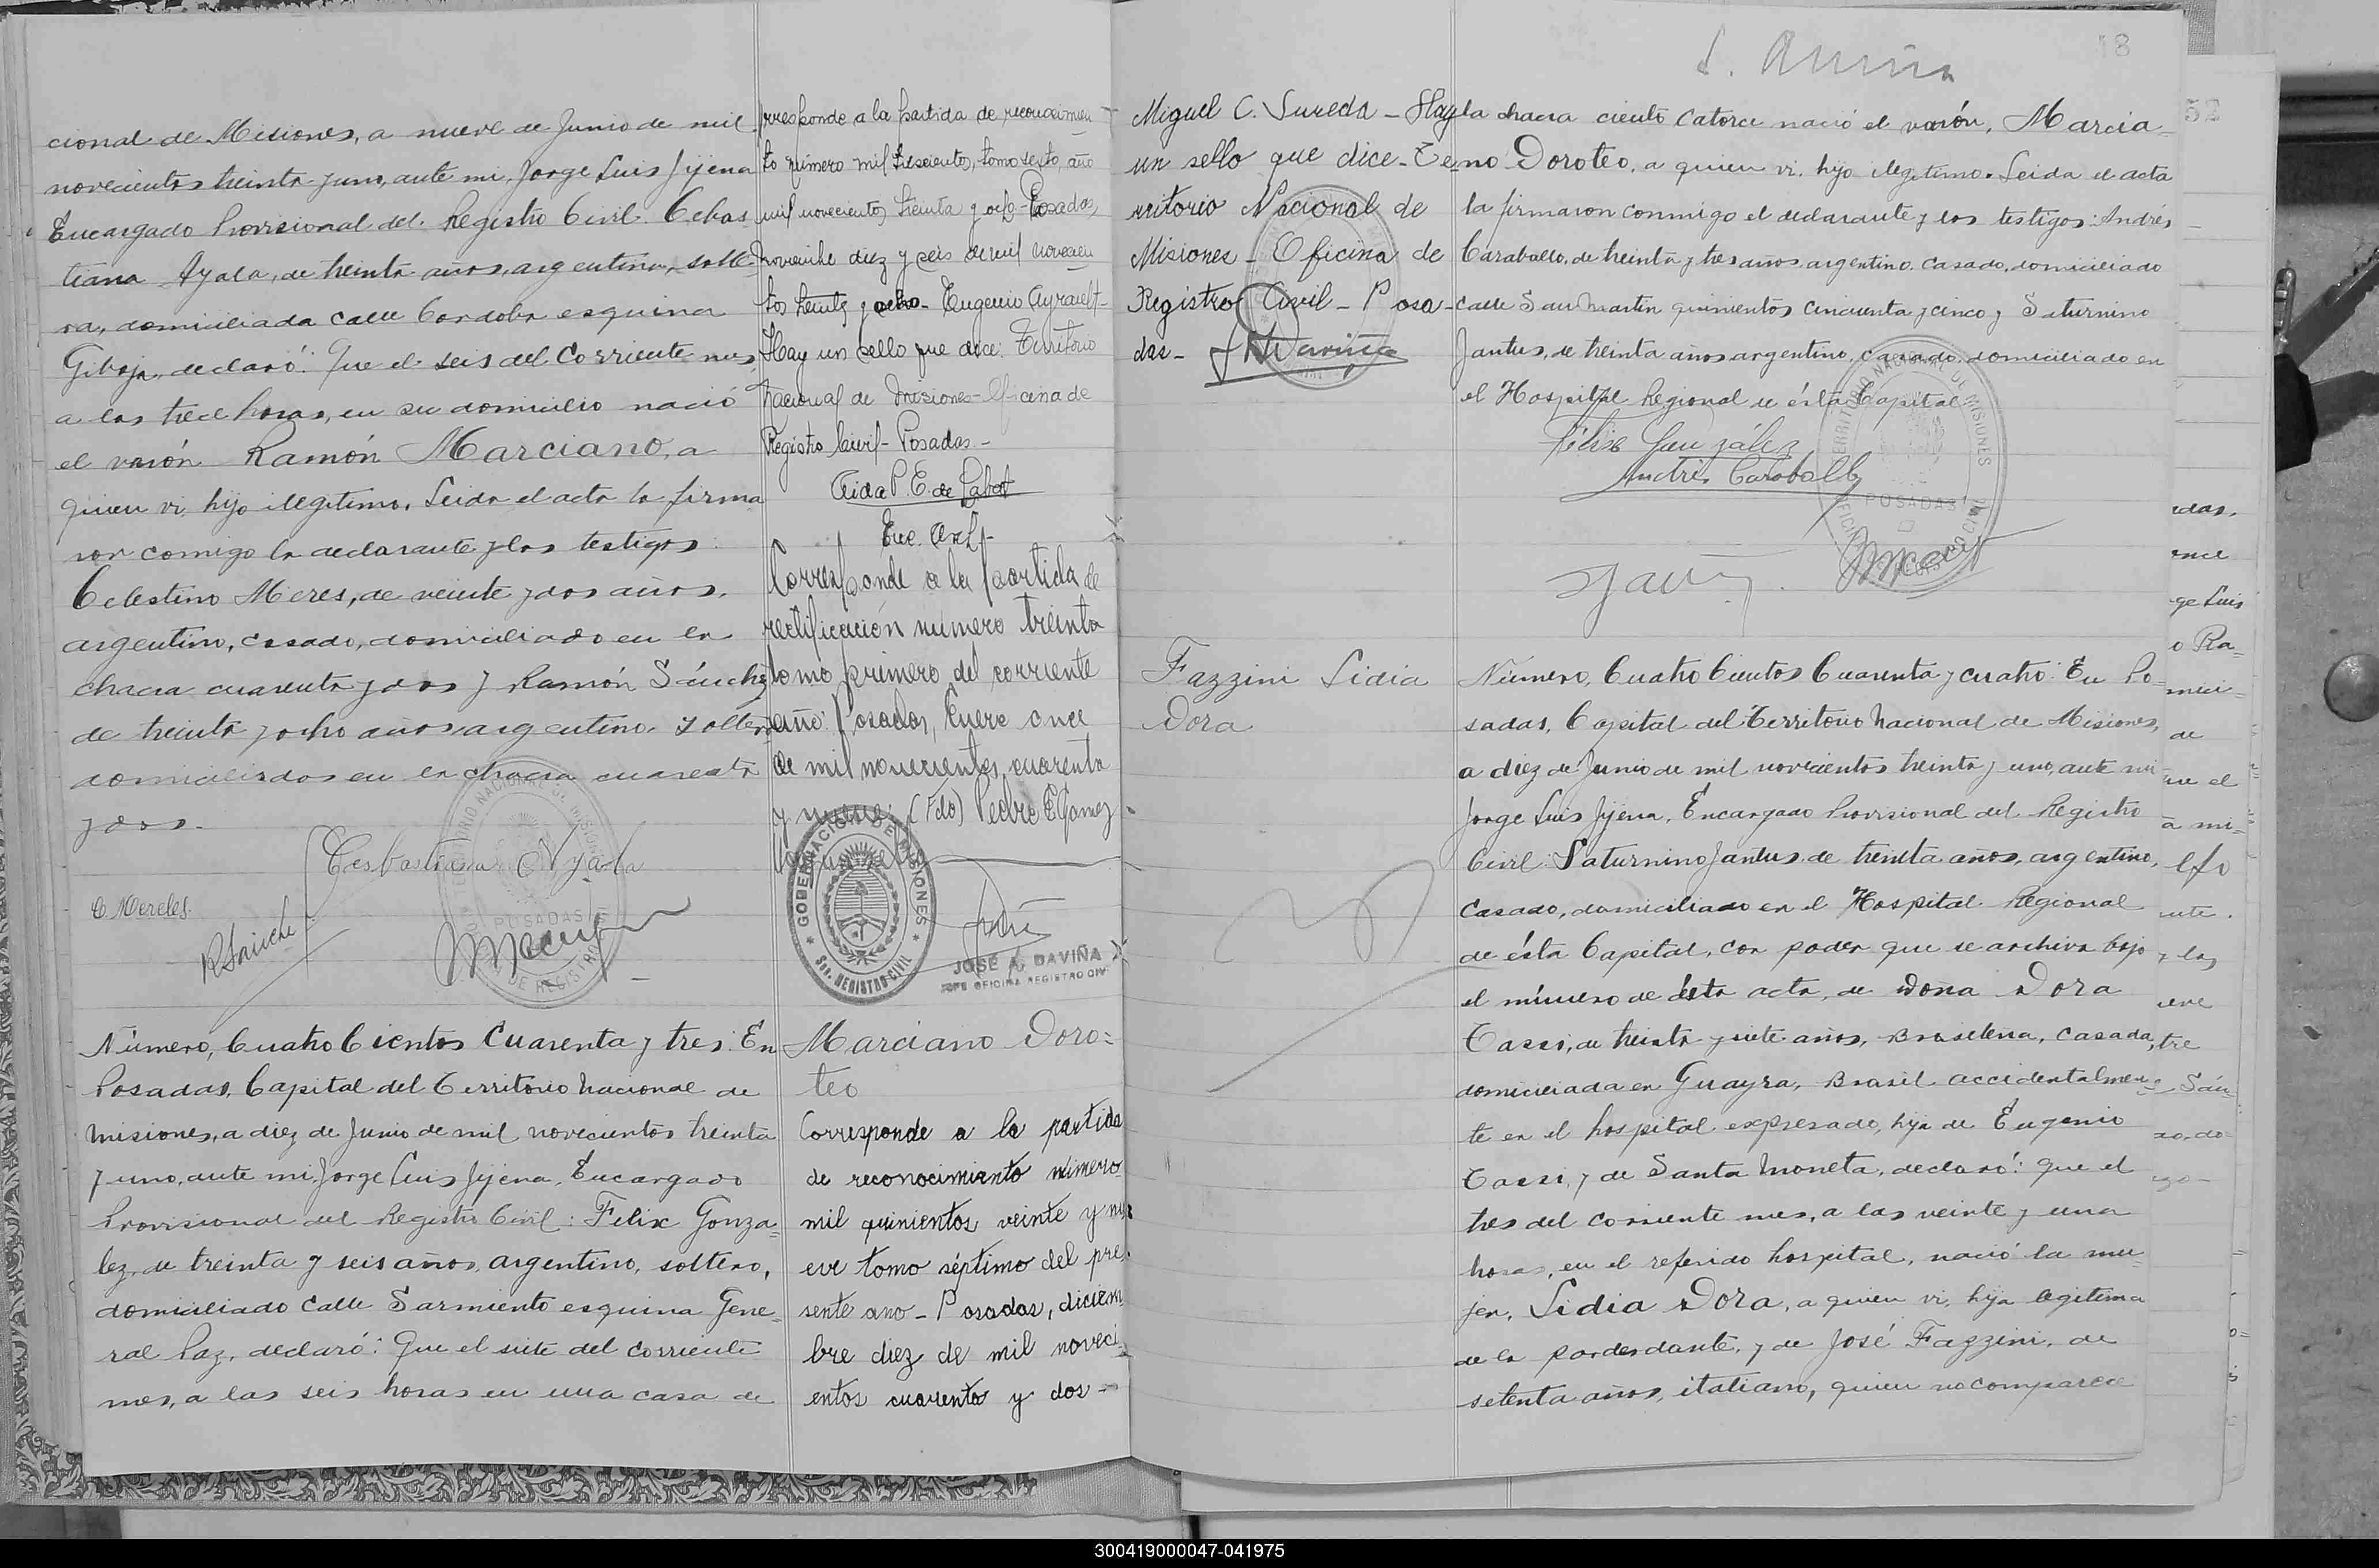 cional de Misiones, a nueve de Junio de mil
novecientos treinta y uno, ante mi, Jorge Luis Jijena
Encargado Provisional del Registro Civil. Cebas
tiana Ayala, de treinta años, argentina, solte
ra, domiciliada calle Cordoba esquina
Giboja, declaró: Que el seis del corriente mes,
a las trece horas, en su domicilio nació
el varón Ramón Marciano, a
quien vi, hijo ilegitimo. Leida el acta la firma
ron comigo la declarante y los testigos:
Celestino Meres, de veinte y dos años,
argentino, casado, domiciliado en la
chacra cuarenta y dos y Ramón Sánchez
de treinta y ocho años, argentino, soltero
domiciliados en la chacra cuarenta
y dos.-
Cesbastiana Ayala
C. Mereles
TERRITORIO NACIONAL DE MISIONES
POSADAS
Número, Cuatro Cientos Cuarenta y tres: En
Posadas, Capital del Territorio Nacional de
Misiones, a diez de Junio de mil novecientos treinta
y uno, ante mi, Jorge Luis Jijena, Encargado
Provisional del Registro Civil: Felix Gonza=
lez, de treinta y seis años, argentino, soltero,
domiciliado calle Sarmiento esquina Gene=
ral Paz, declaró: Que el siete del corriente
mes, a las seis horas en una casa de
rresponde a la partida de reconocimien
to número mil trescientos, tomo sexto, año
mil novecientos treinta y ocho- Posadas,
Noviembre diez y seis de mil novecien
tos treinta y ocho- Eugenio Ayrault-
Hay un sello que dice: Territorio
Nacional de Misiones- Oficina de
Registro Civil- Posadas.-
Aida P. E. de Labat
Enc. Arch-
Corresponde a la partida de
rectificación número treinta
tomo primero del corriente
año: Posadas, Enero once
de mil novecientos cuarenta
y nueve. (Fdo) Pedro E Gomez
GOBERNACION DE MISIONES
Scc. REGISTRO CIVIL
JOSÉ A. DAVIÑA
JEFE OFICINA REGISTRO CIVIL
Marciano Doro=
teo
Corresponde a la partida
de reconocimiento número
mil quinientos veinte y nu
eve tomo séptimo del pre
sente ano - Posadas, diciem
bre diez de mil noveci
entos cuarenta y dos -
18
Miguel C. Sureda - Hay
un sello que dice - Te=
rritorio Nacional de
Misiones - Oficina de
Registro Civil - Posa-
das -
la chacra ciento catorce nació el varón, Marcia=
no Doroteo, a quien vi, hijo ilegitimo. Leida el acta
la firmaron conmigo el declarante y los testigos: Andrés
Caraballo, de treinta y tres años, argentino, casado, domiciliado
calle San Martin quinientos cincuenta y cinco y Saturnino
Jantus, de treinta años, argentino, casado, domiciliado en
el Hospital Regional de ésta Capital.
Félix González
Andrés Caraballo
TERRITORIO NACIONAL DE MISIONES
POSADAS
Fazzini Lidia
Dora
Número, Cuatro Cientos Cuarenta y cuatro: En Po=
sadas, Capital del Territorio Nacional de Misiones,
a diez de Junio de mil novecientos treinta y uno, ante mi
Jorge Luis Jijena, Encargado Provisional del Registro
Civil: Saturnino Jantus, de treinta años, argentino,
casado, domiciliado en el Hospital Regional
de ésta Capital, con poder que se archiva bajo
el número de ésta acta, de Doña Dora
Tassi, de treinta y siete años, Brasileña, casada,
domiciliada en Guayra, Brasil accidentalmen=
te en el hospital expresado, hija de Eugenio
Tassi, y de Santa Moneta, declaró: Que el
tres del corriente mes, a las veinte y una
horas, en el referido hospital, nació la mu=
jer, Lidia Dora, a quien vi, hija legitima
de la poderdante, y de José Fazzini, de
setenta años, italiano, quien no comparece
52
adas,
ge Luis
o Ra=
de
ue el
a mi=
y los
eve
tre
Sán=
300419000047-041975